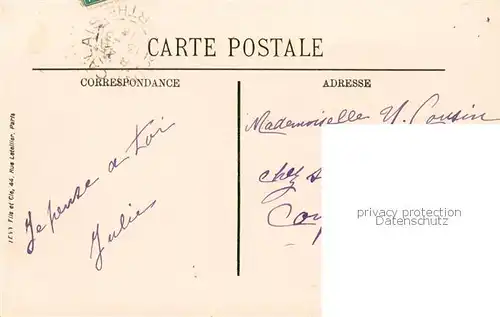 CARTE POSTALE
CORRESPONDANCE
ADRESSE
Mademoiselle Y. Cousin
chez
Je pense a toi
Julie
privacy protection
Datenschutz
Fils et Cie, 44, Rue Letellier, Paris